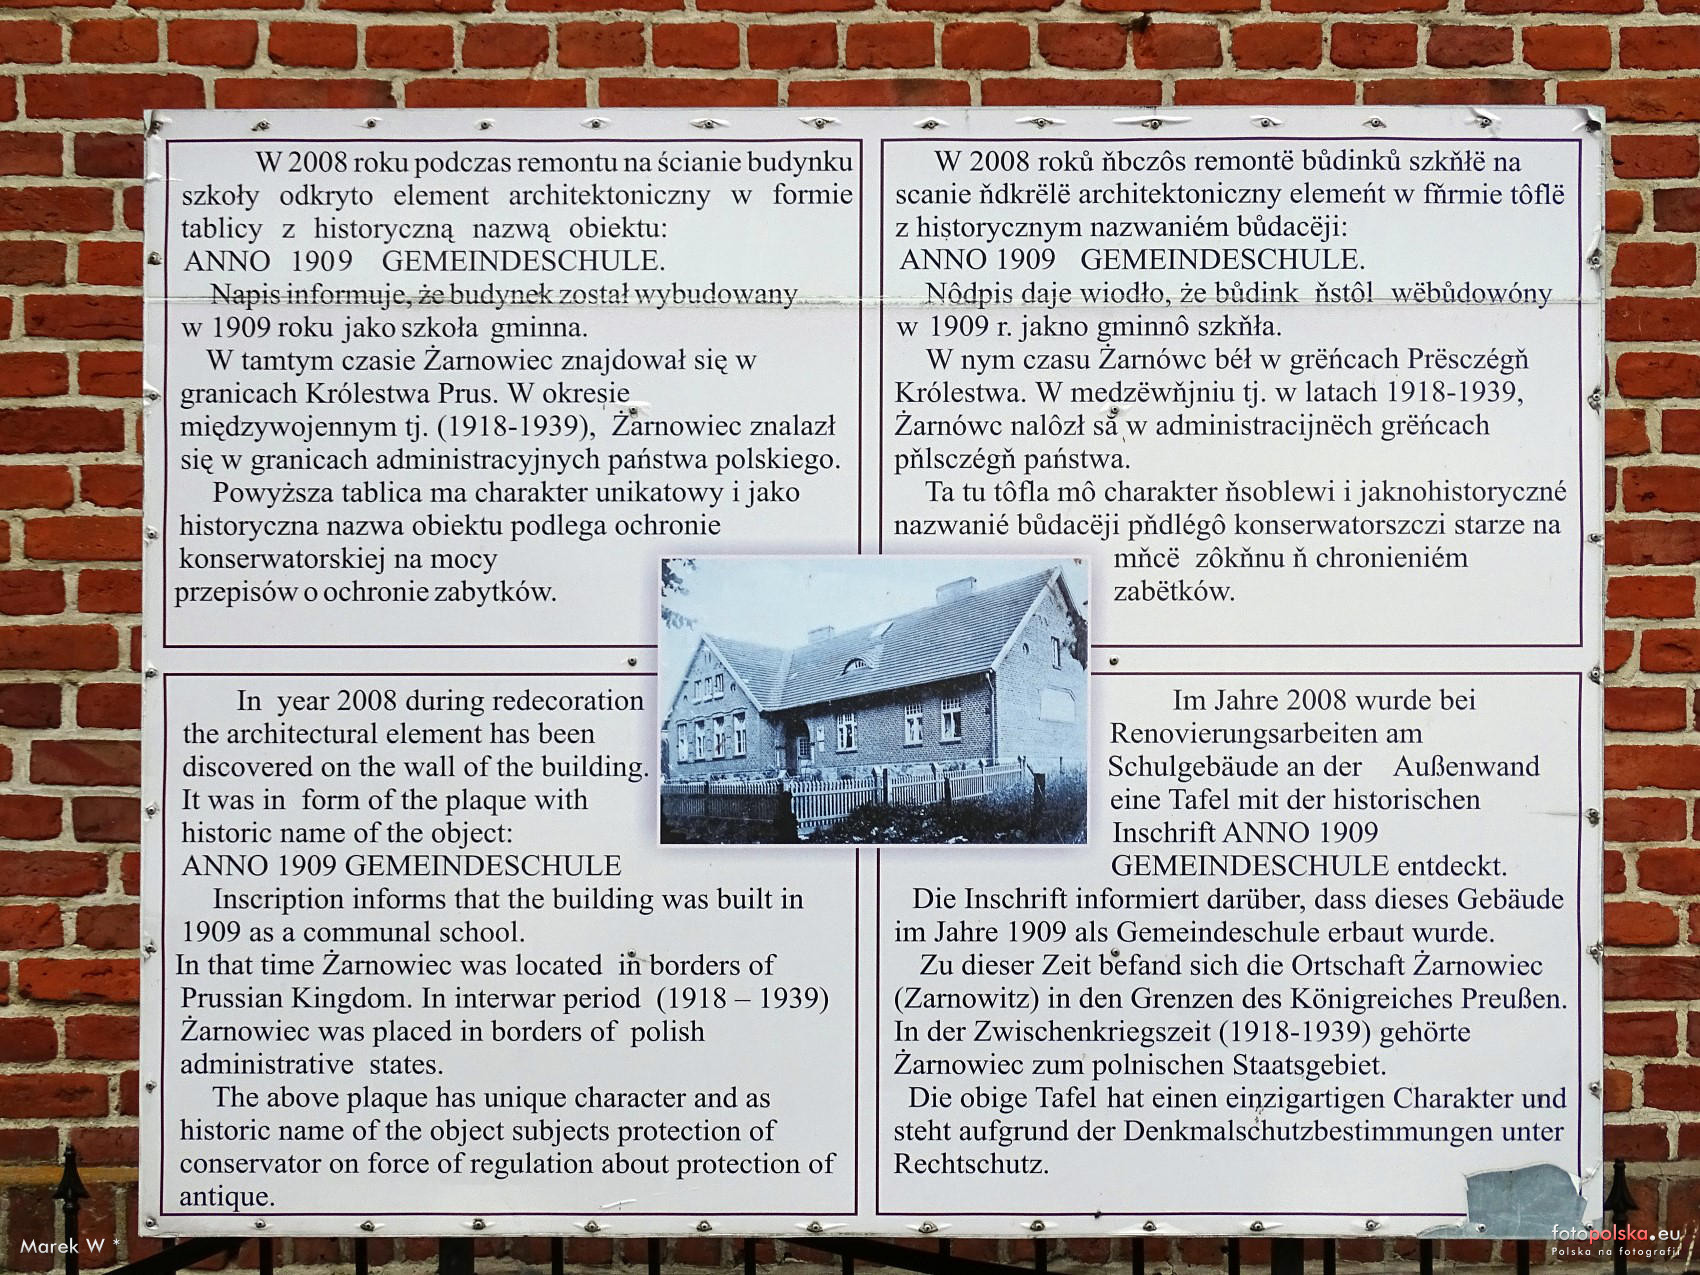 W 2008 roku podczas remontu na ścianie budynku
szkoły odkryto element architektoniczny w formie
tablicy z historyczną nazwą obiektu:
ANNO 1909 GEMEINDESCHULE.
Napis informuje, że budynek został wybudowany
w 1909 roku jako szkoła gminna.
W tamtym czasie Żarnowiec znajdował się w
granicach Królestwa Prus. W okresie
międzywojennym tj. (1918-1939), Żarnowiec znalazł
się w granicach administracyjnych państwa polskiego.
Powyższa tablica ma charakter unikatowy i jako
historyczna nazwa obiektu podlega ochronie
konserwatorskiej na mocy
przepisów o ochronie zabytków.
W 2008 roků ňbczôs remontë bůdinků szkňłë na
scanie ňdkrëlë architektoniczny elemeńt w fňrmie tôflë
z historycznym nazwaniém bůdacëji:
ANNO 1909 GEMEINDESCHULE.
Nôdpis daje wiodło, że bůdink ňstôl wëbůdowóny
w 1909 r. jakno gminnô szkňła.
W nym czasu Żarnówc béł w grëńcach Prësczégň
Królestwa. W medzëwňjniu tj. w latach 1918-1939,
Żarnówc nalôzł są w administracijnëch grëńcach
pňlsczégň państwa.
Ta tu tôfla mô charakter ňsoblewi i jaknohistoryczné
nazwanié bůdacëji pňdlégô konserwatorszczi starze na
mňcë zôkňnu ň chronieniém
zabëtków.
In year 2008 during redecoration
the architectural element has been
discovered on the wall of the building.
It was in form of the plaque with
historic name of the object:
ANNO 1909 GEMEINDESCHULE
Inscription informs that the building was built in
1909 as a communal school.
In that time Żarnowiec was located in borders of
Prussian Kingdom. In interwar period (1918 – 1939)
Żarnowiec was placed in borders of polish
administrative states.
The above plaque has unique character and as
historic name of the object subjects protection of
conservator on force of regulation about protection of
antique.
Im Jahre 2008 wurde bei
Renovierungsarbeiten am
Schulgebäude an der Außenwand
eine Tafel mit der historischen
Inschrift ANNO 1909
GEMEINDESCHULE entdeckt.
Die Inschrift informiert darüber, dass dieses Gebäude
im Jahre 1909 als Gemeindeschule erbaut wurde.
Zu dieser Zeit befand sich die Ortschaft Żarnowiec
(Zarnowitz) in den Grenzen des Königreiches Preußen.
In der Zwischenkriegszeit (1918-1939) gehörte
Żarnowiec zum polnischen Staatsgebiet.
Die obige Tafel hat einen einzigartigen Charakter und
steht aufgrund der Denkmalschutzbestimmungen unter
Rechtschutz.
Marek W *
fotopolska.eu
Polska na fotografii